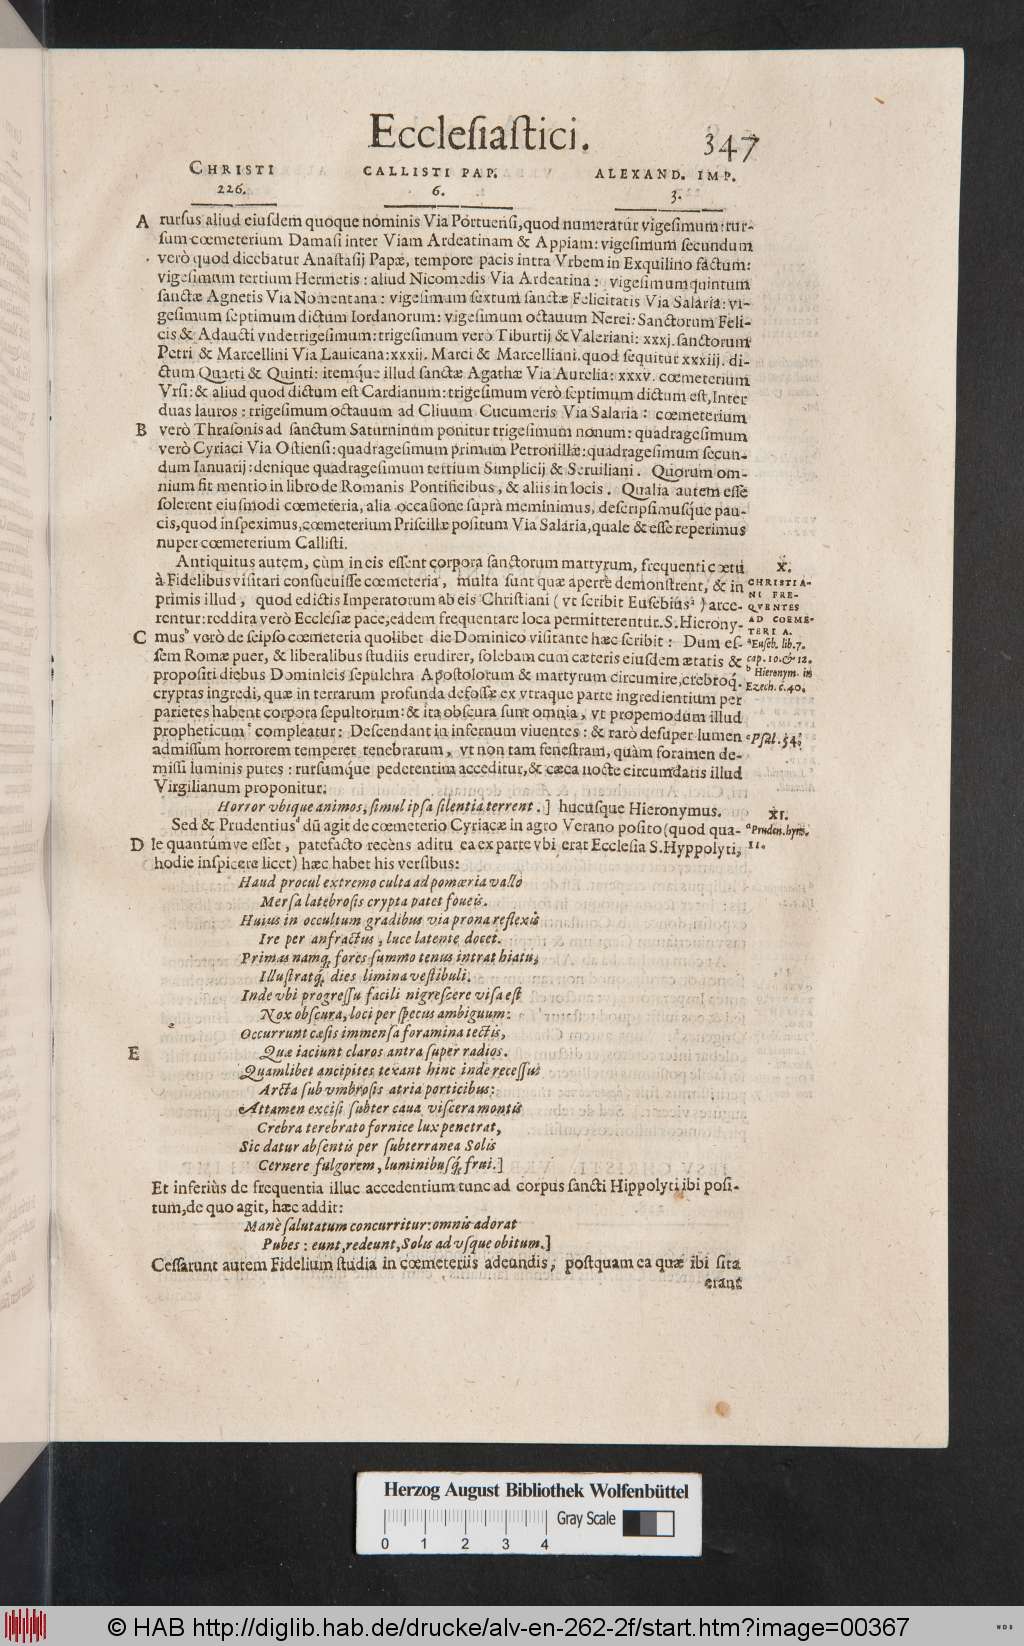 Eccleſiaſtici. 347
CHRISTI CALLISTI PAP. ALEXAND. IMP.
226. 6. 3.
A rurſus aliud eiuſdem quoque nominis Via Portuenſi, quod numeratur vigeſimum: rur-
ſum cœmeterium Damaſi inter Viam Ardeatinam & Appiam: vigeſimum ſecundum
verò quod dicebatur Anaſtaſij Papæ, tempore pacis intra Vrbem in Exquilino factum:
vigeſimum tertium Hermetis: aliud Nicomedis Via Ardeatina: vigeſimum quintum
ſanctæ Agnetis Via Nomentana: vigeſimum ſextum ſanctæ Felicitatis Via Salaria: vi-
geſimum ſeptimum dictum Iordanorum: vigeſimum octauum Nerei: Sanctorum Feli-
cis & Adaucti vndetrigeſimum: trigeſimum verò Tiburtij & Valeriani: xxxj. ſanctorum
Petri & Marcellini Via Lauicana: xxxij. Marci & Marcelliani. quod ſequitur xxxiij. di-
ctum Quarti & Quinti: itemq́ue illud ſanctæ Agathæ Via Aurelia: xxxv. cœmeterium
Vrſi: & aliud quod dictum eſt Cardianum: trigeſimum verò ſeptimum dictum eſt, Inter
duas lauros: trigeſimum octauum ad Cliuum Cucumeris Via Salaria: cœmeterium
B verò Thraſonis ad ſanctum Saturninum ponitur trigeſimum nonum: quadrageſimum
verò Cyriaci Via Oſtienſi: quadrageſimum primum Petronillæ: quadrageſimum ſecun-
dum Ianuarij: denique quadrageſimum tertium Simplicij & Seruiliani. Quorum om-
nium fit mentio in libro de Romanis Pontificibus, & aliis in locis. Qualia autem eſſe
ſolerent eiuſmodi cœmeteria, alia occaſione ſuprà meminimus, deſcripſimuſq́ue pau-
cis, quod inſpeximus, cœmeterium Priſcillæ poſitum Via Salaria, quale & eſſe reperimus
nuper cœmeterium Calliſti.
Antiquitus autem, cùm in eis eſſent corpora ſanctorum martyrum, frequenti cœtu
à Fidelibus viſitari conſueuiſſe cœmeteria, multa ſunt quæ apertè demonſtrent, & in
primis illud, quod edictis Imperatorum ab eis Chriſtiani (vt ſcribit Euſebius a) arce-
rentur: reddita verò Eccleſiæ pace, eadem frequentare loca permitterentur. S. Hierony-
C mus b verò de ſeipſo cœmeteria quolibet die Dominico viſitante hæc ſcribit: Dum eſ-
ſem Romæ puer, & liberalibus ſtudiis erudirer, ſolebam cum cæteris eiuſdem ætatis &
propoſiti diebus Dominicis ſepulchra Apoſtolorum & martyrum circumire, crebroq́.
cryptas ingredi, quæ in terrarum profunda defoſſæ ex vtraque parte ingredientium per
parietes habent corpora ſepultorum: & ita obſcura ſunt omnia, vt propemodum illud
propheticum c compleatur: Deſcendant in infernum viuentes: & rarò deſuper lumen
admiſſum horrorem temperet tenebrarum, vt non tam feneſtram, quàm foramen de-
miſſi luminis putes: rurſumq́ue pedetentim acceditur, & cæca nocte circumdatis illud
Virgilianum proponitur:
Horror vbique animos, ſimul ipſa ſilentia terrent.] hucuſque Hieronymus.
Sed & Prudentius d dū agit de cœmeterio Cyriacæ in agro Verano poſito (quod qua-
D le quantúmve eſſet, patefacto recèns aditu ea ex parte vbi erat Eccleſia S. Hyppolyti,
hodie inſpicere licet) hæc habet his verſibus:
Haud procul extremo culta ad pomœria vallo
Merſa latebroſis crypta patet foueis.
Huius in occultum gradibus via prona reflexis
Ire per anfractus, luce latente docet.
Primas namq, fores ſummo tenus intrat hiatu,
Illuſtratq́, dies limina veſtibuli.
Inde vbi progreſſu facili nigreſcere viſa eſt
Nox obſcura, loci per ſpecus ambiguum:
Occurrunt cæſis immenſa foramina tectis,
E Quæ iaciunt claros antra ſuper radios.
Quamlibet ancipites texant hinc inde receſſus
Arcta ſub vmbroſis atria porticibus:
Attamen exciſi ſubter caua viſcera montis
Crebra terebrato fornice lux penetrat,
Sic datur abſentis per ſubterranea Solis
Cernere fulgorem, luminibuſq́, frui.]
Et inferiùs de frequentia illuc accedentium tunc ad corpus ſancti Hippolyti ibi poſi-
tum, de quo agit, hæc addit:
Manè ſalutatum concurritur: omnis adorat
Pubes: eunt, redeunt, Solis ad vſque obitum.]
Ceſſarunt autem Fidelium ſtudia in cœmeteriis adeundis, poſtquam ea quæ ibi ſita
erant
X.
CHRISTIA-
NI FRE-
QVENTES
AD COEME-
TERIA.
a Euſeb. lib. 7.
cap. 10. & 12.
b Hieronym. in
Ezech. c. 40.
c Pſal. 54.
XI.
d Pruden. hym.
11.
Herzog August Bibliothek Wolfenbüttel
Gray Scale
0 1 2 3 4
© HAB http://diglib.hab.de/drucke/alv-en-262-2f/start.htm?image=00367